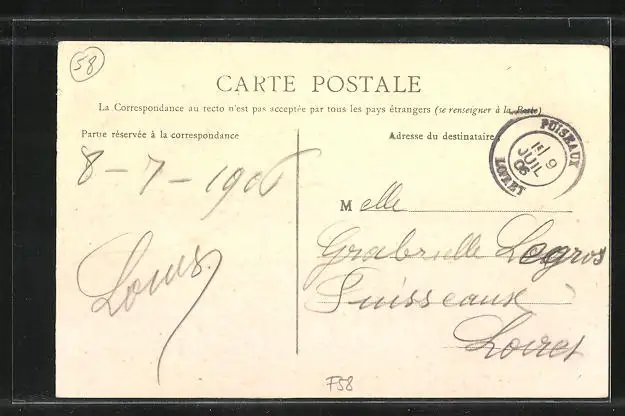 58
CARTE POSTALE
La Correspondance au recto n'est pas acceptée par tous les pays étrangers (se renseigner à la Poste)
Partie réservée à la correspondance
Adresse du destinataire
PUISEAUX
9
JUIL
06
LOIRET
8-7-1906
Melle
Grabrielle Legros
Puisseaux
Loiret
Louis
F58